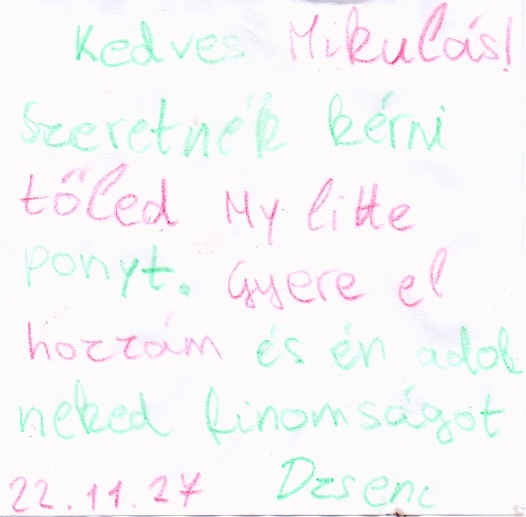 Kedves Mikulás!
Szeretnék kérni
tőled My litte
ponyt. Gyere el
hozzám és én adok
neked finomságot
22.11.27 Dzsenc